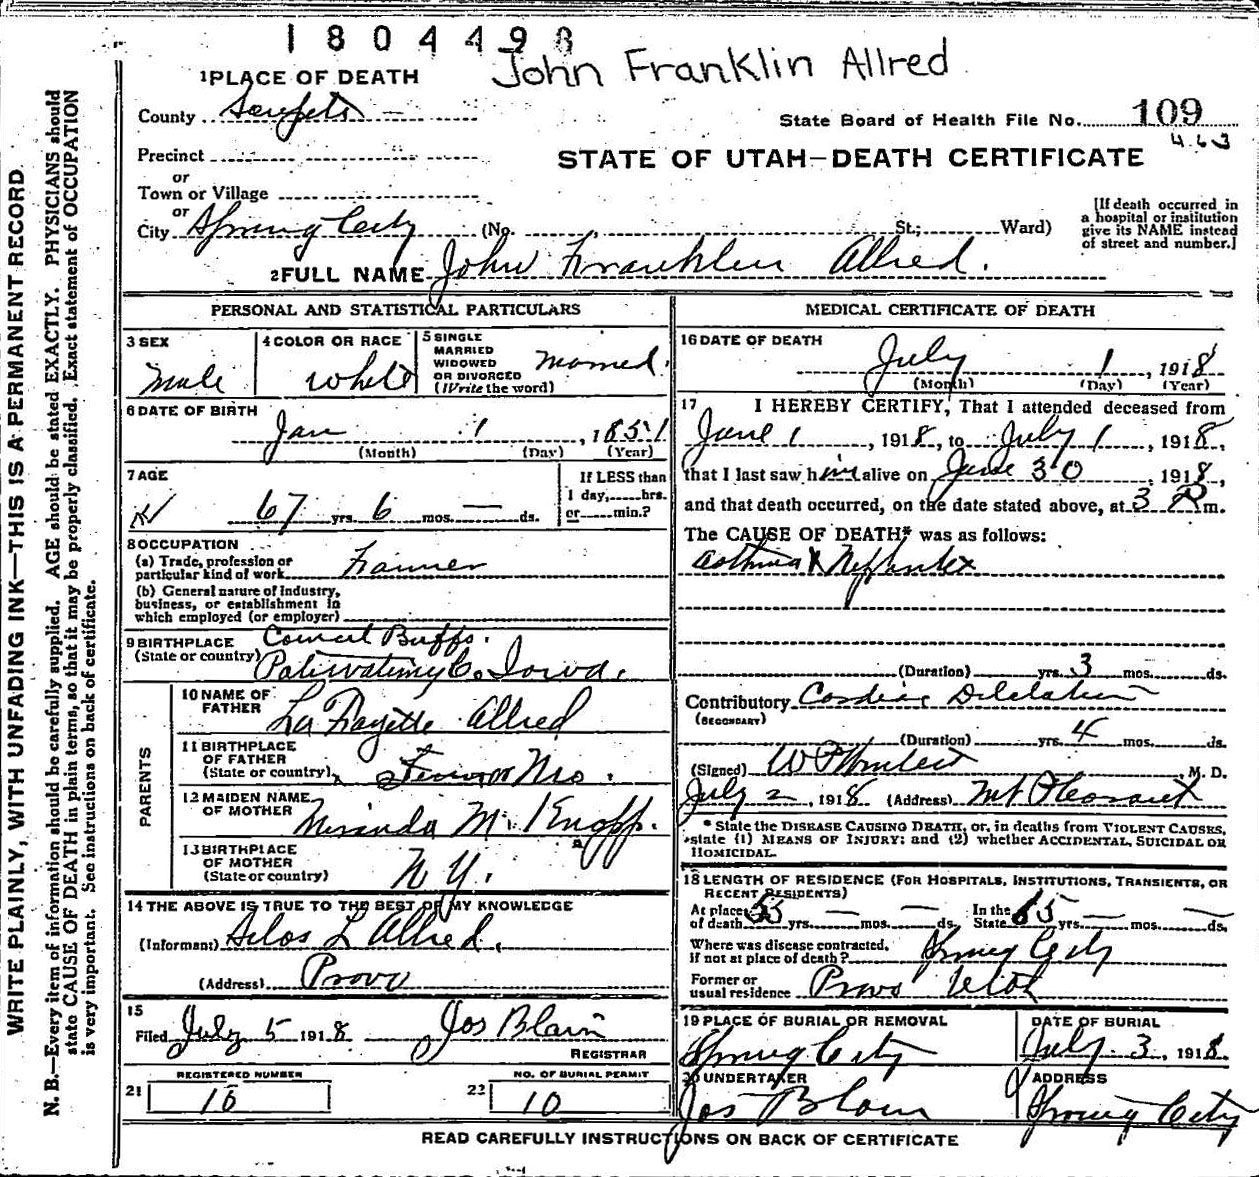 1804498
John Franklin Allred
1 PLACE OF DEATH
County Sanpete
State Board of Health File No. 109
463
Precinct
STATE OF UTAH—DEATH CERTIFICATE
or
Town or Village
or
City Spring City (No. St.; Ward)
[If death occurred in a hospital or institution give its NAME instead of street and number.]
2 FULL NAME John Franklin Allred.
PERSONAL AND STATISTICAL PARTICULARS
3 SEX Male
4 COLOR OR RACE White
5 SINGLE MARRIED WIDOWED OR DIVORCED (Write the word) Married.
6 DATE OF BIRTH
Jan 1, 1851
(Month) (Day) (Year)
7 AGE
67 yrs. 6 mos. — ds.
If LESS than 1 day, hrs. or min.?
8 OCCUPATION
(a) Trade, profession or particular kind of work Farmer
(b) General nature of industry, business, or establishment in which employed (or employer)
9 BIRTHPLACE (State or country) Council Buffs. Co. Iowa.
PARENTS
10 NAME OF FATHER La Fayette Allred
11 BIRTHPLACE OF FATHER (State or country)
12 MAIDEN NAME OF MOTHER Miranda M. Knopp.
13 BIRTHPLACE OF MOTHER (State or country) N Y.
14 THE ABOVE IS TRUE TO THE BEST OF MY KNOWLEDGE
(Informant) L Allred.
(Address) Provo
15
Filed July 5 1918 Jos Blain
REGISTRAR
REGISTERED NUMBER
21 16
NO. OF BURIAL PERMIT
22 10
MEDICAL CERTIFICATE OF DEATH
16 DATE OF DEATH
July 1, 1918
(Month) (Day) (Year)
17 I HEREBY CERTIFY, That I attended deceased from
June 1, 1918, to July 1, 1918,
that I last saw him alive on June 30, 1918,
and that death occurred, on the date stated above, at 3 P m.
The CAUSE OF DEATH* was as follows:
Asthma
(Duration) yrs. 3 mos. ds.
Contributory Cardiac Dilatation
(SECONDARY)
(Duration) yrs. 4 mos. ds.
(Signed) M. D.
July 2, 1918 (Address) Mt Pleasant
* State the DISEASE CAUSING DEATH, or, in deaths from VIOLENT CAUSES,
state (1) MEANS OF INJURY; and (2) whether ACCIDENTAL, SUICIDAL OR
HOMICIDAL.
18 LENGTH OF RESIDENCE (FOR HOSPITALS, INSTITUTIONS, TRANSIENTS, OR
RECENT RESIDENTS)
At place of death 55 yrs. — mos. — ds. In the State 65 yrs. — mos. — ds.
Where was disease contracted, if not at place of death? Spring City
Former or usual residence Provo Utah
19 PLACE OF BURIAL OR REMOVAL
Spring City
DATE OF BURIAL
July 3, 1918
20 UNDERTAKER
Jos Blain
ADDRESS
Spring City
READ CAREFULLY INSTRUCTIONS ON BACK OF CERTIFICATE
WRITE PLAINLY, WITH UNFADING INK—THIS IS A PERMANENT RECORD.
N. B.—Every item of information should be carefully supplied. AGE should be stated EXACTLY. PHYSICIANS should
state CAUSE OF DEATH in plain terms, so that it may be properly classified. Exact statement of OCCUPATION
is very important. See instructions on back of certificate.